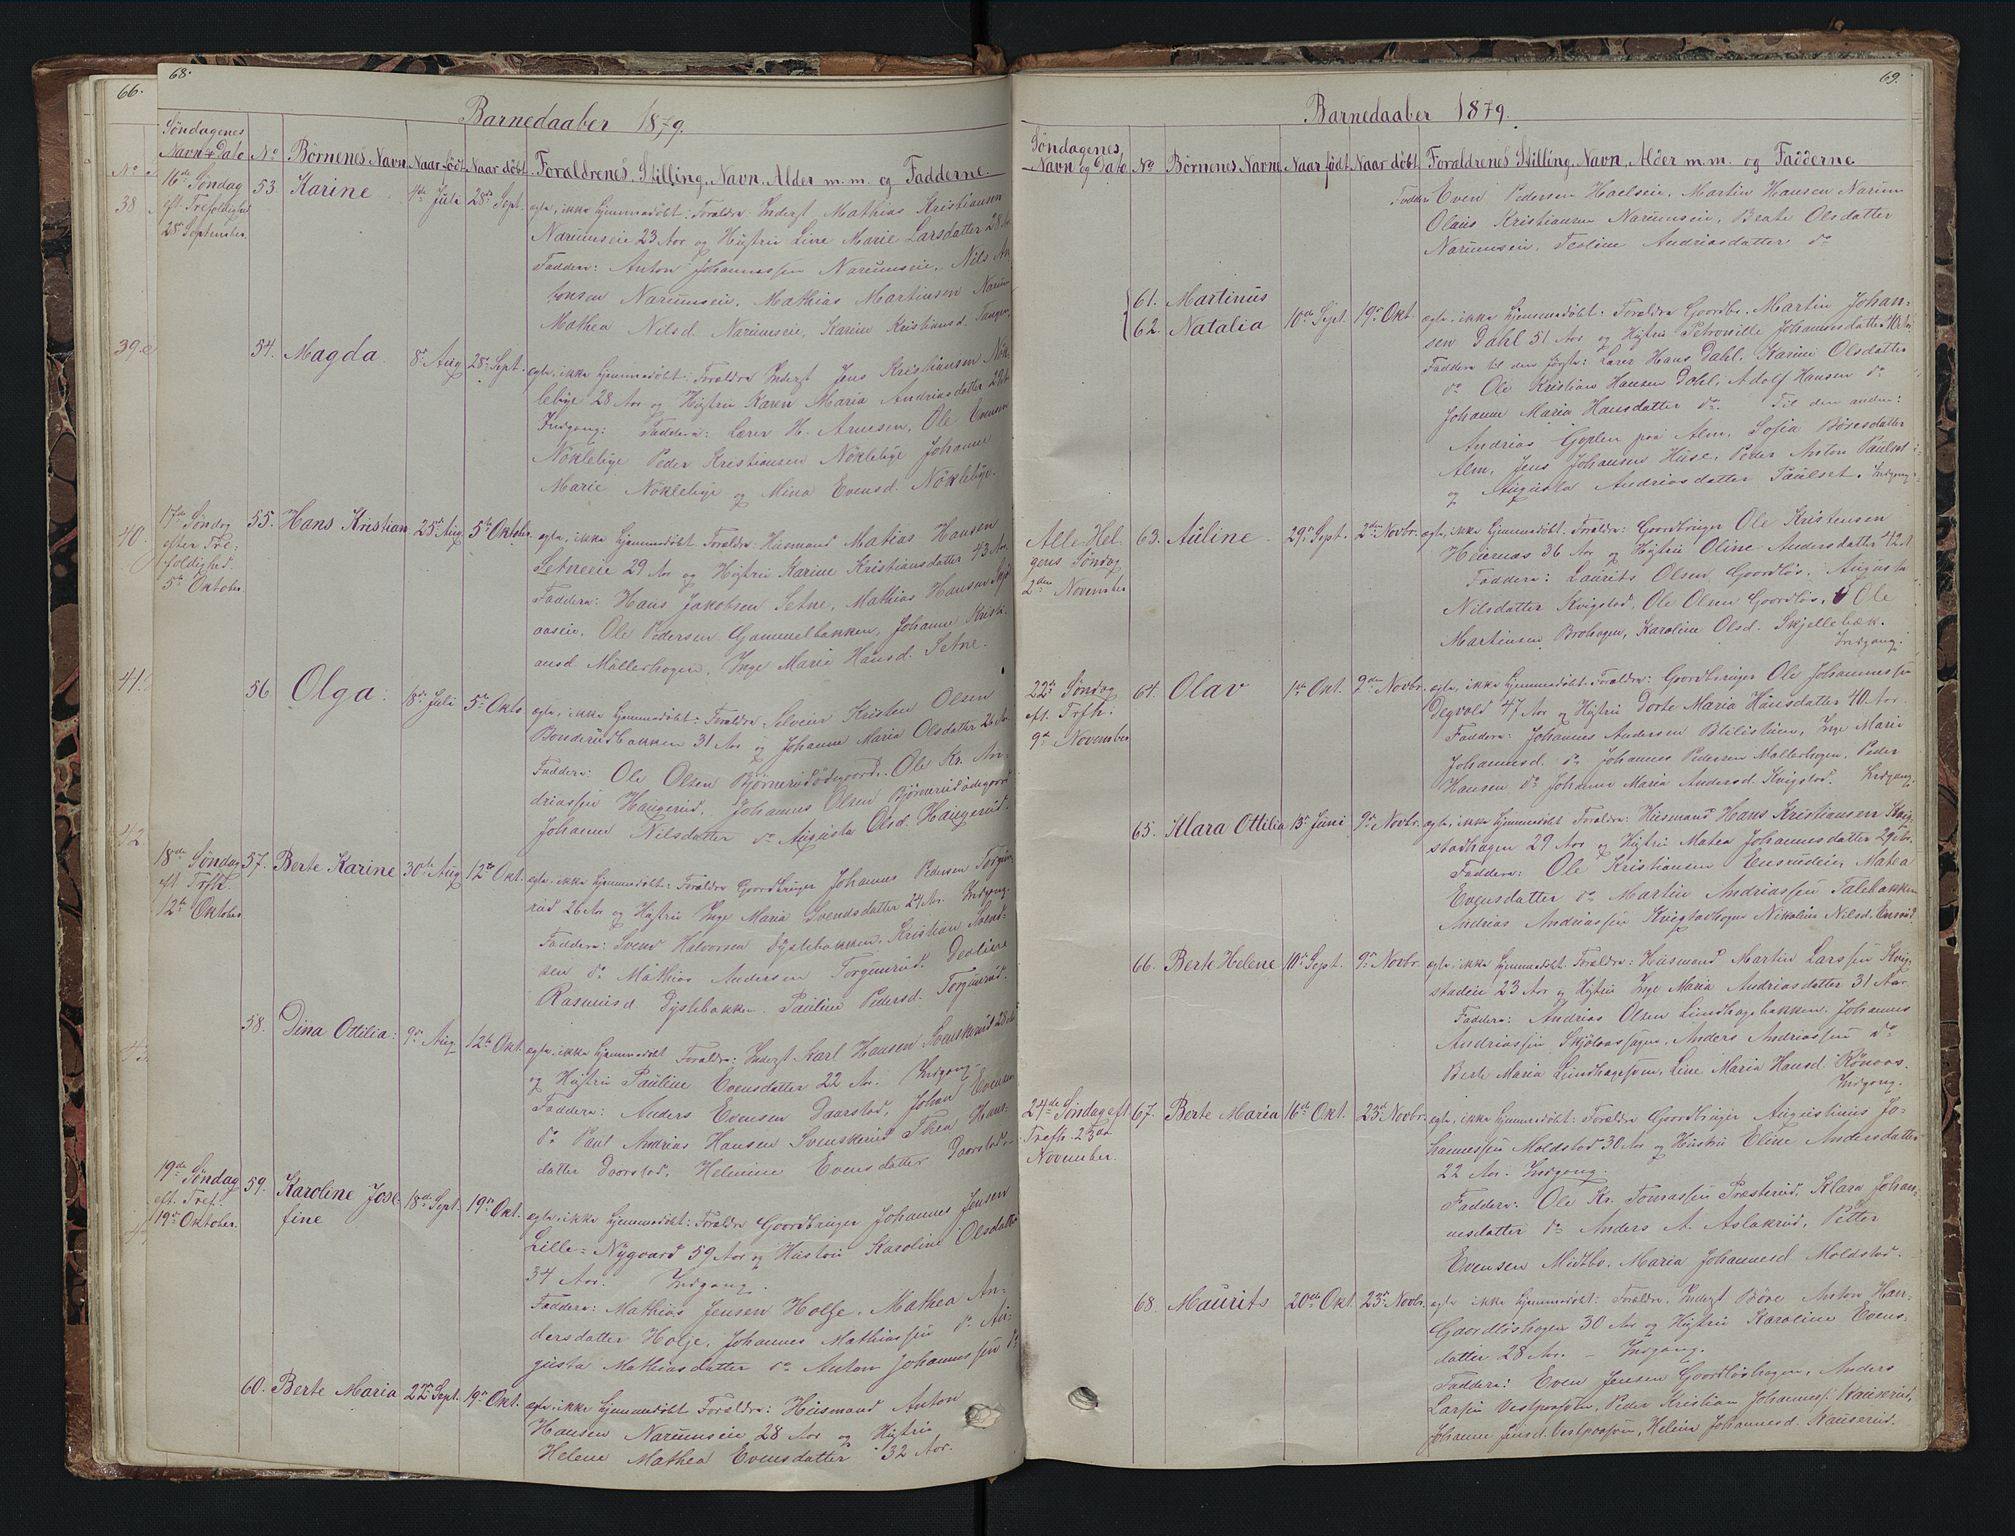 66.
68.
Barnedaaber 1879.
Søndagenes
Navn & Dato No Børnenes Navn Naar født Naar døbt Foraldrenes Stilling, Navn, Alder m.m. og Fadderne.
16de Søndag 53. Karine 4de Juli 28de Sept. egte, ikke hjemmedøbt: Foraldre: Inderst, Mathias Kristiansen
eft. Trefoldighed
28de September.
Narumseie 23 Aar og Hustru Line Marie Larsdatter 28 Aar
Faddere: Anton Johannessen Narumseie, Nils An-
tonsen Narumseie, Mathias Martinsen Narum
Mathea Nilsd. Narumseie, Karine Kristiansd. Tangen.
54. Magda 8de Aug 28de Sept. egte, ikke hjemmedøbt: Foraldre Inderst Jens Kristiansen Nøk-
lebye 28 Aar og Hustru Karen Maria Andriasdatter 29 Aar
Indgang: Faddere: Lærer H. Arnesen, Ole Evensen
Nøklebye Peder Kristiansen Nøklebye Johanne
Marie Nøklebye og Mina Evensd. Nøklebye.
17de Søndag 55. Hans Kristian 25de Aug 5te Oktober egte, ikke hjemmedøbt: Foraldre: Husmand Matias Hansen
efter Tre-
foldighed.
5te Oktober
Setneeie 29 Aar og Hustru Karine Kristiansdatter 43 Aar
Faddere: Hans Jakobsen Setne, Mathias Hansen
aaseie, Ole Pedersen Gammelbakken, Johanne Kristi-
ansd Møllerhagen, Inge Marie Hansd. Setne.
56 Olga: 18de Juli 5te Okto. egte, ikke hjemmedøbt: Foraldre Selveier Kristen Olsen
Bonderudbakken 31 Aar og Johanne Maria Olsdatter 26 Aar
Faddere: Ole Olsen Bjørnerudødegaard, Ole Kr. An-
driassen Haugerud, Johannes Olsen Bjørnerudødegaard
Johanne Nilsdatter do Augusta Olsd. Haugerud.
18de Søndag 57. Berte Karine 30te Aug 12te Okt. egte, ikke hjemmedøbt: Foraldre Gaardbruger Johannes Pedersen Torgun-
eft Trfh.
12te Oktober
rud 26 Aar og Hustru Inge Maria Svendsdatter 24 Aar. Indgang.
Faddere: Svend Halvorsen Dystebakken, Kristian Svend-
sen do Mathias Andersen Torgunrud. Deoline
Rasmusd Dystebakken. Pauline Pedersd. Torgunrud.
58. Dina Ottilia: 9de Aug 12te Okt. egte, ikke hjemmedøbt Foraldre: Inderst Karl Hansen Svenskerud 28 Aar
og Hustru Pauline Evensdatter 22 Ar. Indgang.
Faddere: Anders Evensen Daarstad, Johan Evensen
do Paul Andrias Hansen Svenskerud Thea Hans-
datter Daarstad, Helmine Evensdatter Daarstad.
19de Søndag 59. Karoline Jose- 18de Sept. 19de Okt. egte, ikke hjemmedøbt: Foraldre Gaardbruger Johannes Jensen
eft. Tref.
19de Oktober.
fine
Lille-Nygaard 59 Aar og Hustru Karoline Olsdatter
34 Aar. Indgang.
Faddere: Mathias Jensen Holje, Mathea An-
dersdatter Holje, Johannes Mathiassen do Au-
gusta Mathiasdatter do Anton Johannessen do
60. Berte Maria 22de Sept. 19de Okt. egte, ikke hjemmedøbt Foraldre: Husmand Anton
Hansen Narumseie 28 Aar og Hustru
Helene Mathea Evensdatter 32 Aar.
69.
Barnedaaber 1879.
Søndagenes
Navn og Dato No Børnenes Navne Naar født Naar døbt Foraldrenes Stilling, Navn, Alder m.m. og Fadderne
Faddere Even Pedersen Hoelseie, Martin Hansen Narum
Olaus Kristiansen Narumseie, Beate Olsdatter
Narumseie, Teoline Andriasdatter do
61. Martinus
62. Natalia 10de Sept. 19de Okt. egte ikke hjemmedøbt: Foraldre Gaardbr. Martin Johan-
sen Dahl 51 Aar og Hustru Petronille Johannesdatter 40 Ar
Faddere til den første: Lærer Hans Dahl, Karine Olsdatter
do Ole Kristian Hansen Dahl, Adolf Hansen do
Johanne Maria Hansdatter do. Til den anden:
Andrias Goplen paa Alm, Sofia Børesdatter
Alm, Jens Johansen Huse, Peder Anton Paulset
og Augusta Andriasdatter Paulset. Indgang.
Alle Hel- 63. Auline 29de Sept. 2den Novbr. egte, ikke hjemmedøbt. Foraldre: Gaardbruger Ole Kristensen
gens Søndag
2den November
Heiernæs 36 Aar og Hustru Oline Andersdatter 42 A
Faddere: Laurits Olsen Gaardløs, Augusta
Nilsdatter Kvigstad, Ole Olsen Gaardløs, Ole
Martinsen Brohagen, Karoline Olsd. Skjellebæk.
Indgang.
22de Søndag 64. Olav 1ste Okt. 2den Novbr. egte, ikke hjemmedøbt: Foraldre: Gaardbruger Ole Johannessen
eft. Trfh:
9de November
Degvold 47 Aar og Hustru Dorte Maria Hansdatter 40 Aar.
Faddere: Johannes Andersen Blilistuen, Inge Marie
Johannesd. do Johannes Pedersen Møllerhagen, Peder
Hansen do Johanne Maria Andersd. Kvigstad. Indgang.
65. Klara Ottilia 15de Juni 9de Novbr. egte, ikke hjemmedøbt Foraldre: Husmand Hans Kristiansen Kvig-
stadhagen 29 Aar og Hustru Matea Johannesdatter 29 Aar
Faddere: Ole Kristiansen Ensrudeie, Matea
Evensdatter do Martin Andriassen Talebakken
Andrias Andriassen Kvigstadhagen Nikoline Nilsd. Ensrud.
66. Berte Helene 10de Sept. 9de Novbr. egte, ikke hjemmedøbt. Foraldre: Husmand Martin Larssen Kvig-
stadeie 23 Aar og Hustru Inge Maria Andriasdatter 31 Aar.
Faddere: Andrias Olsen Lundhagebakken, Johannes
Andriassen Skjølaas, Anders Andriassen do
Berte Maria Lundhagesveen, Line Maria Hansd Rønaas.
Indgang.
24de Søndag eft 67. Berte Maria 16de Okt. 23de Novbr. egte, ikke hjemmedøbt: Foraldre Gaardbruger Augustinus Jo-
Trefh. 23de
November.
hannessen Moldstad 30 Aar og Hustru Eline Andersdatter
22 Aar. Indgang.
Faddere: Ole Kr. Tomassen Præsterud, Klara Johan-
nesdatter do Anders A. Aslakrud, Petter
Evensen Midtbø, Maria Johannesd. Moldstad.
68. Maurits 20de Okt. 23de Novbr. egte ikke hjemmedøbt: Foraldre, Inderst Børe Anton Han-
Gaardløshagen 30 Aar og Hustru Karoline Evens-
datter 28 Aar. - Indgang.
Faddere: Even Jensen Gaardløshagen, Anders
Larsen Vestpaasveen, Peder Kristian Johanness. Nauserud,
Johanne Jensd. Vestpaasveen, Helene Johannesd. Nauserud.